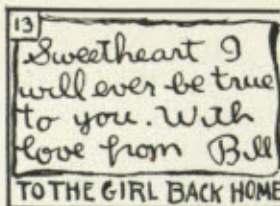 13
Sweetheart I
will ever be true
to you. With
love from Bill
TO THE GIRL BACK HOME